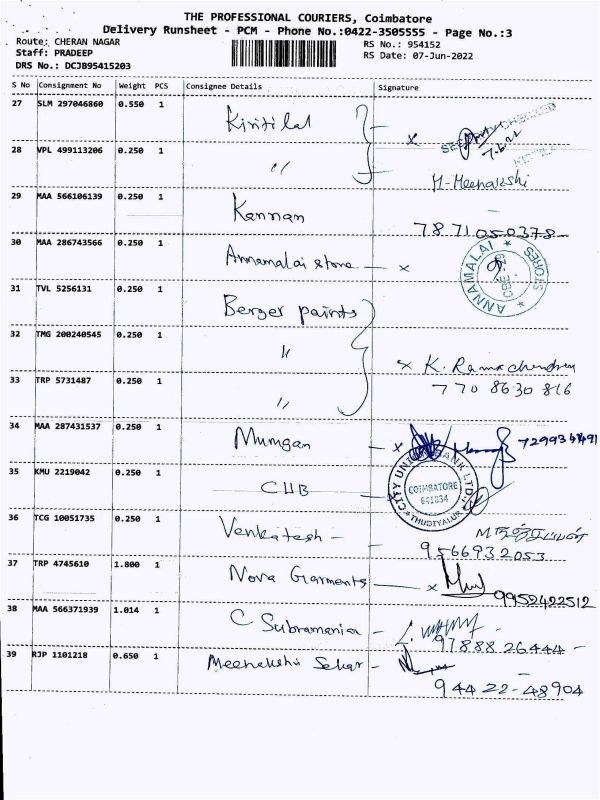 THE PROFESSIONAL COURIERS, Coimbatore
Delivery Runsheet - PCM - Phone No.:0422-3505555 - Page No.:3
Route: CHERAN NAGAR
Staff: PRADEEP
DRS No.: DCJB95415203
RS No.: 954152
RS Date: 07-Jun-2022
S No Consignment No Weight PCS Consignee Details Signature
27 SLM 297046860 0.550 1 Kiritilal
7.6.22
28 VPL 499113206 0.250 1 "
M-Meenakshi
29 MAA 566106139 0.250 1 Kannan
7871050378
30 MAA 286743566 0.250 1 Annamalai store - x
ANNAMALAI * STORES *
31 TVL 5256131 0.250 1 Berger paints
32 TMG 200240545 0.250 1 "
x K. Ramachendran
33 TRP 5731487 0.250 1 "
770 8630 816
34 MAA 287431537 0.250 1 Murugan - x
35 KMU 2219042 0.250 1 CUB -
CITY UNION BANK LTD.
COIMBATORE
641034
* THUDIYALUR *
36 TCG 10051735 0.250 1 Venkatesh -
9566932053
37 TRP 4745610 1.800 1 Nova Garments - x
9952422512
38 MAA 566371939 1.014 1 C Subramanian -
97888 26444 -
39 RJP 1101218 0.650 1 Meenakshi Sekar -
94422-48904